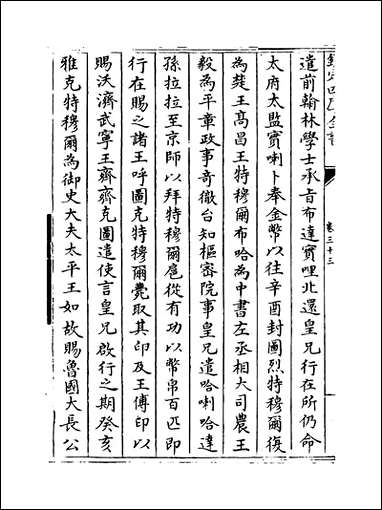 欽定四庫全書
卷三十三
遣前翰林學士承旨布達實哩北還皇兄行在所仍命
太府太監實喇卜奉金幣以往辛酉封圖烈特穆爾復
為楚王高昌王特穆爾布哈為中書左丞相大司農王
毅為平章政事奇徹台知樞密院事皇兄遣哈喇哈達
孫拉拉至京師以拜特穆爾扈從有功以幣帛百匹即
行在賜之諸王呼圖克特穆爾薨取其印及王傅印以
賜沃濟武寧王齊齊克圖遣使言皇兄啟行之期癸亥
雅克特穆爾為御史大夫太平王如故賜魯國大長公